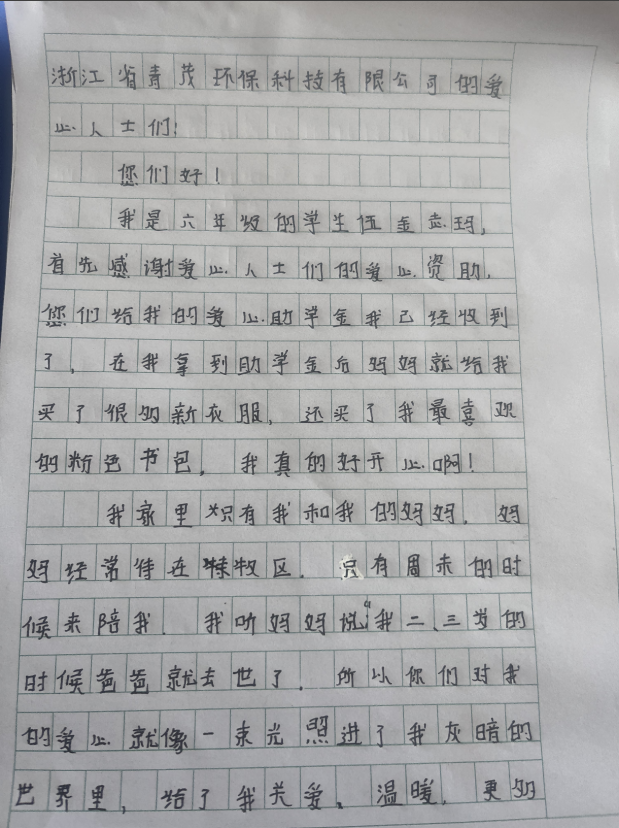 浙江省青茂环保科技有限公司的爱
心人士们:
您们好!
我是六年级的学生伍金志玛,
首先感谢爱心人士们的爱心资助,
您们给我的爱心助学金我已经收到
了,在我拿到助学金后妈妈就给我
买了很多新衣服,还买了我最喜欢
的粉色书包,我真的好开心啊!
我家里只有我和我的妈妈,妈
妈经常待在牧区,只有周末的时
候来陪我,我听妈妈说我二、三岁的
时候爸爸就去世了,所以你们对我
的爱心就像一束光照进了我灰暗的
世界里,给了我关爱、温暖,更多